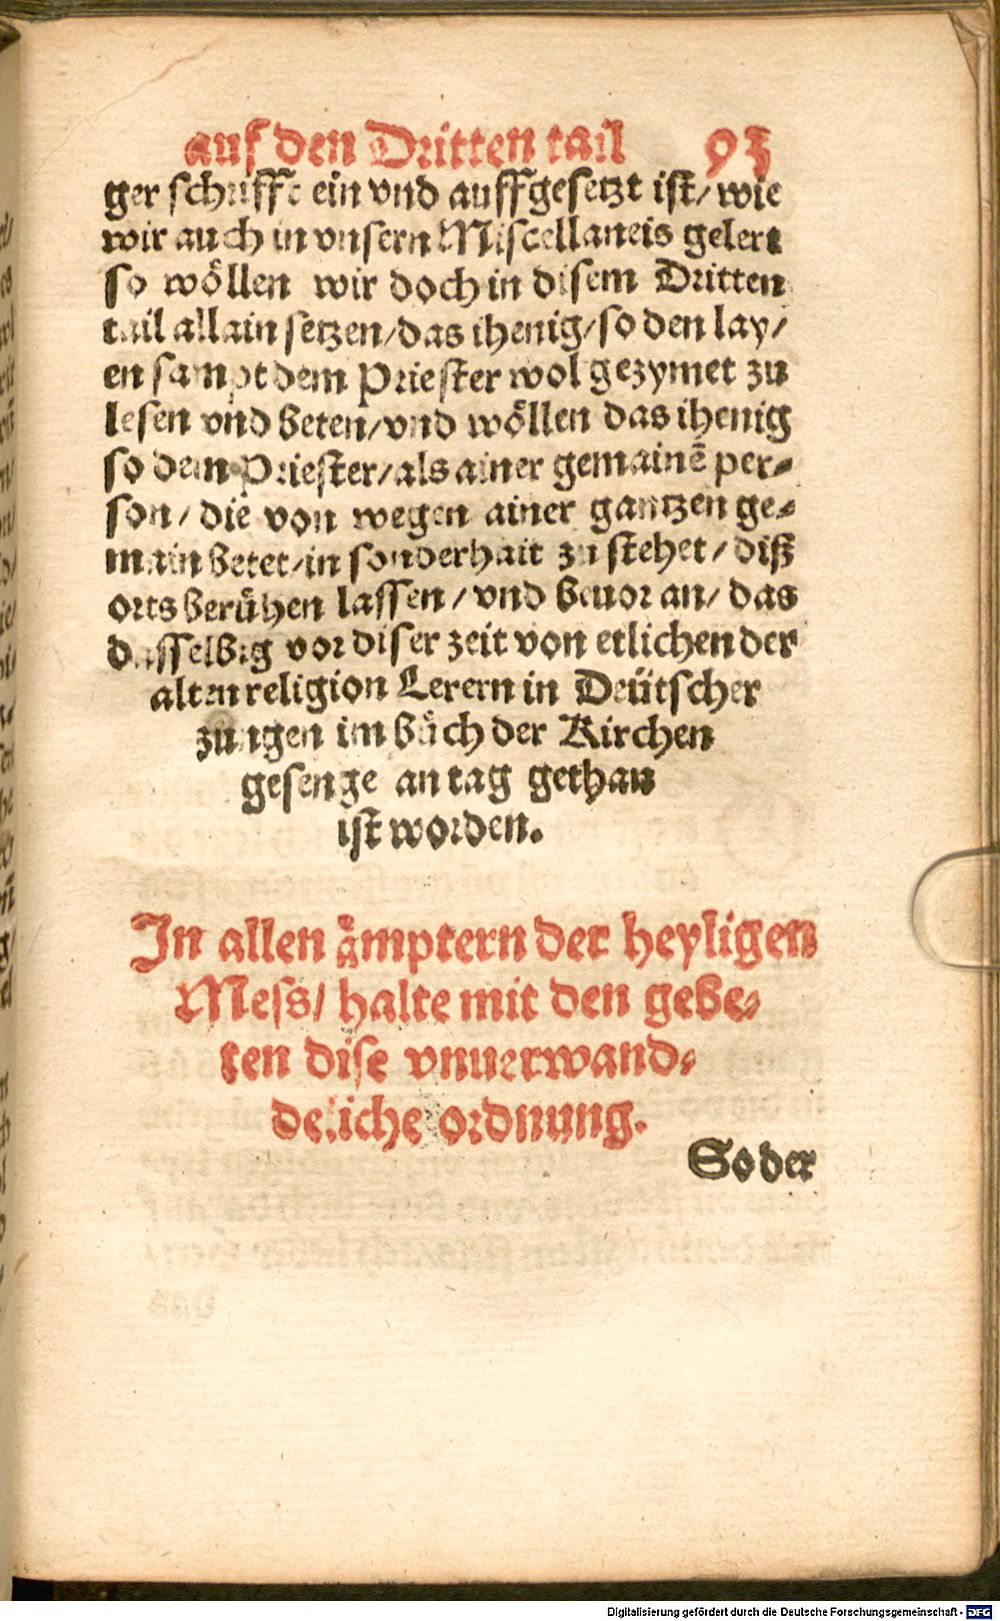 auf den Dritten tail 93
ger schrifft ein vnd auffgesetzt ist/ wie
wir auch in vnsern Miscellaneis gelert
so wöllen wir doch in disem Dritten
tail allain setzen/das ihenig/so den lay/
en sampt dem Priester wol gezymet zu
lesen vnd beten/vnd wöllen das ihenig
so dem Priester/als ainer gemainē per⸗
son/ die von wegen ainer gantzen ge⸗
main betet/in sonderhait zu stehet/ diß
orts berůhen lassen/ vnd beuor an/ das
dasselbig vor diser zeit von etlichen der
alten religion Lerern in Deütscher
zungen im bůch der Kirchen
gesenge an tag gethan
ist worden.
In allen åmptern der heyligen
Mess/ halte mit den gebe⸗
ten dise vnuerwand⸗
deliche ordnung.
So der
Digitalisierung gefördert durch die Deutsche Forschungsgemeinschaft - DFG